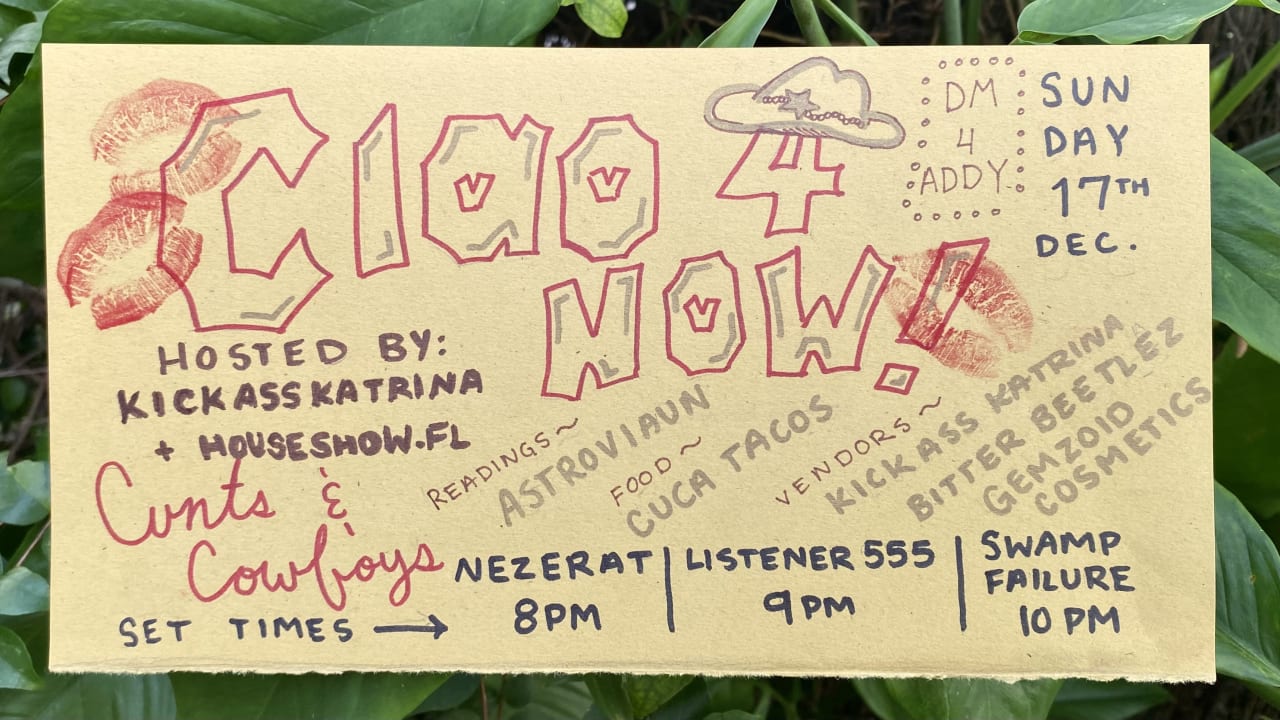 Ciao 4
NOW!
DM
4
ADDY
SUN
DAY
17TH
DEC.
HOSTED BY:
KICKASSKATRINA
+ HOUSESHOW.FL
Cunts &
Cowboys
READINGS~
ASTROVIAUN
FOOD~
CUCA TACOS
VENDORS~
KICKASS KATRINA
BITTER BEETLEZ
GEMZOID
COSMETICS
SET TIMES →
NEZERAT
8PM
LISTENER 555
9PM
SWAMP
FAILURE
10 PM